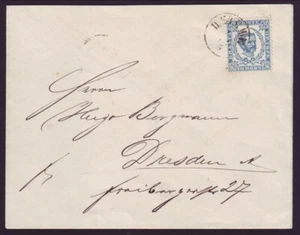 Herrn
Hugo Bergmann
Dresden A
Freibergerstr 27